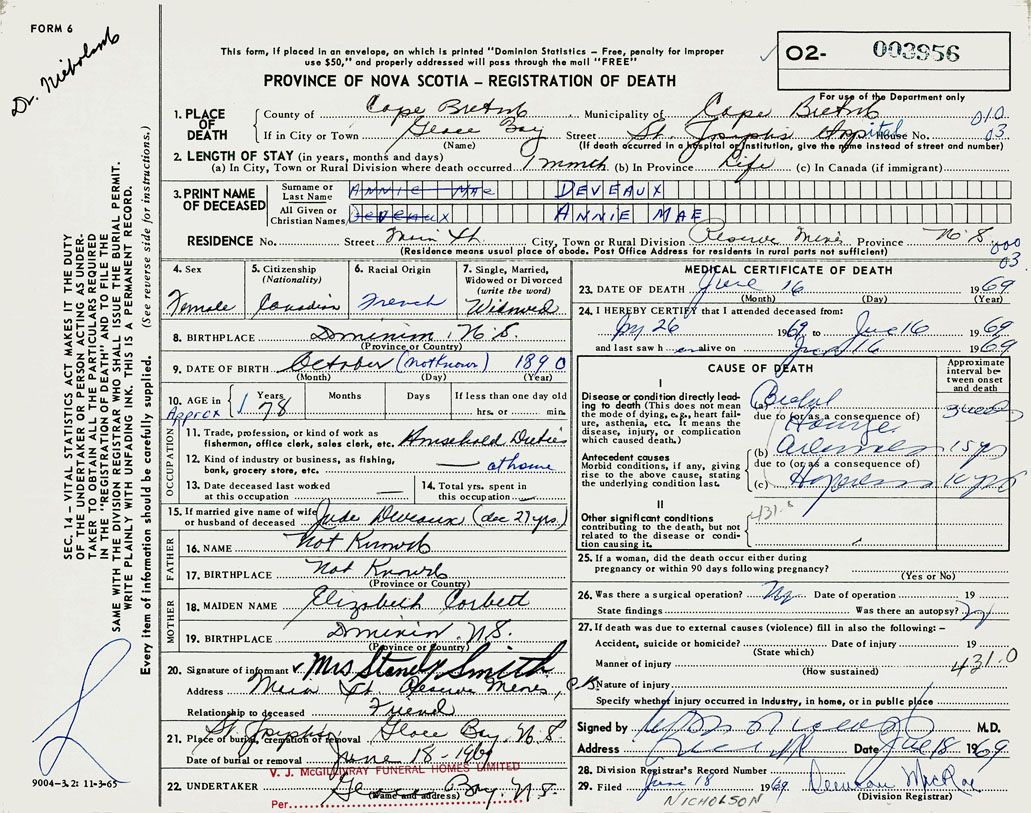 FORM 6
Dr. Nicholson
This form, if placed in an envelope, on which is printed "Dominion Statistics – Free, penalty for improper
use $50," and properly addressed will pass through the mail "FREE"
O2- 003956
For use of the Department only
PROVINCE OF NOVA SCOTIA – REGISTRATION OF DEATH
1. PLACE OF DEATH
County of Cape Breton Municipality of Cape Breton 010
If in City or Town Glace Bay Street St. Josephs Hospital House No. 03
(Name) (If death occurred in a hospital or institution, give the name instead of street and number)
2. LENGTH OF STAY (in years, months and days)
(a) In City, Town or Rural Division where death occurred 1 month (b) In Province Life (c) In Canada (if immigrant)
3. PRINT NAME OF DECEASED
Surname or Last Name ANNIE MAE DEVEAUX
All Given or Christian Names Deveaux ANNIE MAE
RESIDENCE No. Street Main St. City, Town or Rural Division Reserve Mines Province N.S.
(Residence means usual place of abode. Post Office Address for residents in rural parts not sufficient)
000
03
4. Sex
Female
5. Citizenship
(Nationality)
Canadian
6. Racial Origin
French
7. Single, Married,
Widowed or Divorced
(write the word)
Widowed
8. BIRTHPLACE Dominion, N.S.
(Province or Country)
9. DATE OF BIRTH October (not known) 1890
(Month) (Day) (Year)
10. AGE in Approx Years 78 Months Days If less than one day old
hrs. or min.
OCCUPATION
11. Trade, profession, or kind of work as
fishermen, office clerk, sales clerk, etc. Household Duties
12. Kind of industry or business, as fishing,
bank, grocery store, etc. — at home
13. Date deceased last worked
at this occupation —
14. Total yrs. spent in
this occupation —
15. If married give name of wife
or husband of deceased Jude Deveaux (dec 27 yrs.)
FATHER
16. NAME Not Known
17. BIRTHPLACE Not Known
(Province or Country)
MOTHER
18. MAIDEN NAME Elizabeth Corbett
19. BIRTHPLACE Dominion, N.S.
(Province or Country)
20. Signature of informant Mrs Stanely Smith
Address Main St. Reserve Mines, C.B.
Relationship to deceased Friend
21. Place of burial, cremation or removal St. Josephs Glace Bay, N.S.
Date of burial or removal June 18 - 1969
V. J. McGILLIVRAY FUNERAL HOMES LIMITED
22. UNDERTAKER Glace Bay, N.S.
(Name and address)
Per
MEDICAL CERTIFICATE OF DEATH
23. DATE OF DEATH June 16 1969
(Month) (Day) (Year)
24. I HEREBY CERTIFY that I attended deceased from:
26 1969 to June 16 1969
and last saw h er alive on June 16 1969
CAUSE OF DEATH
Approximate
interval be-
tween onset
and death
I
Disease or condition directly lead-
ing to death (This does not mean
the mode of dying, e.g., heart fail-
ure, asthenia, etc. It means the
disease, injury, or complication
which caused death.)
(a)
due to (or as a consequence of)
3 weeks
Antecedent causes
Morbid conditions, if any, giving
rise to the above cause, stating
the underlying condition last.
(b) 15 yrs
due to (or as a consequence of)
(c) 10 yrs
II
Other significant conditions
contributing to the death, but not
related to the disease or condi-
tion causing it.
431.0
25. If a woman, did the death occur either during
pregnancy or within 90 days following pregnancy?
(Yes or No)
26. Was there a surgical operation? No Date of operation 19
State findings Was there an autopsy? No
27. If death was due to external causes (violence) fill in also the following: –
Accident, suicide or homicide? Date of injury 19
(State which)
Manner of injury 431.0
(How sustained)
Nature of injury
Specify whether injury occurred in industry, in home, or in public place
Signed by M.D.
Address Date June 18 1969
28. Division Registrar's Record Number
29. Filed June 18 1969
(Division Registrar)
NICHOLSON
SEC. 14 – VITAL STATISTICS ACT MAKES IT THE DUTY
OF THE UNDERTAKER OR PERSON ACTING AS UNDER-
TAKER TO OBTAIN ALL THE PARTICULARS REQUIRED
IN THE "REGISTRATION OF DEATH" AND TO FILE THE
SAME WITH THE DIVISION REGISTRAR WHO SHALL ISSUE THE BURIAL PERMIT.
WRITE PLAINLY WITH UNFADING INK. THIS IS A PERMANENT RECORD.
Every item of information should be carefully supplied. (See reverse side for instructions.)
9004–3.2: 11-3-65